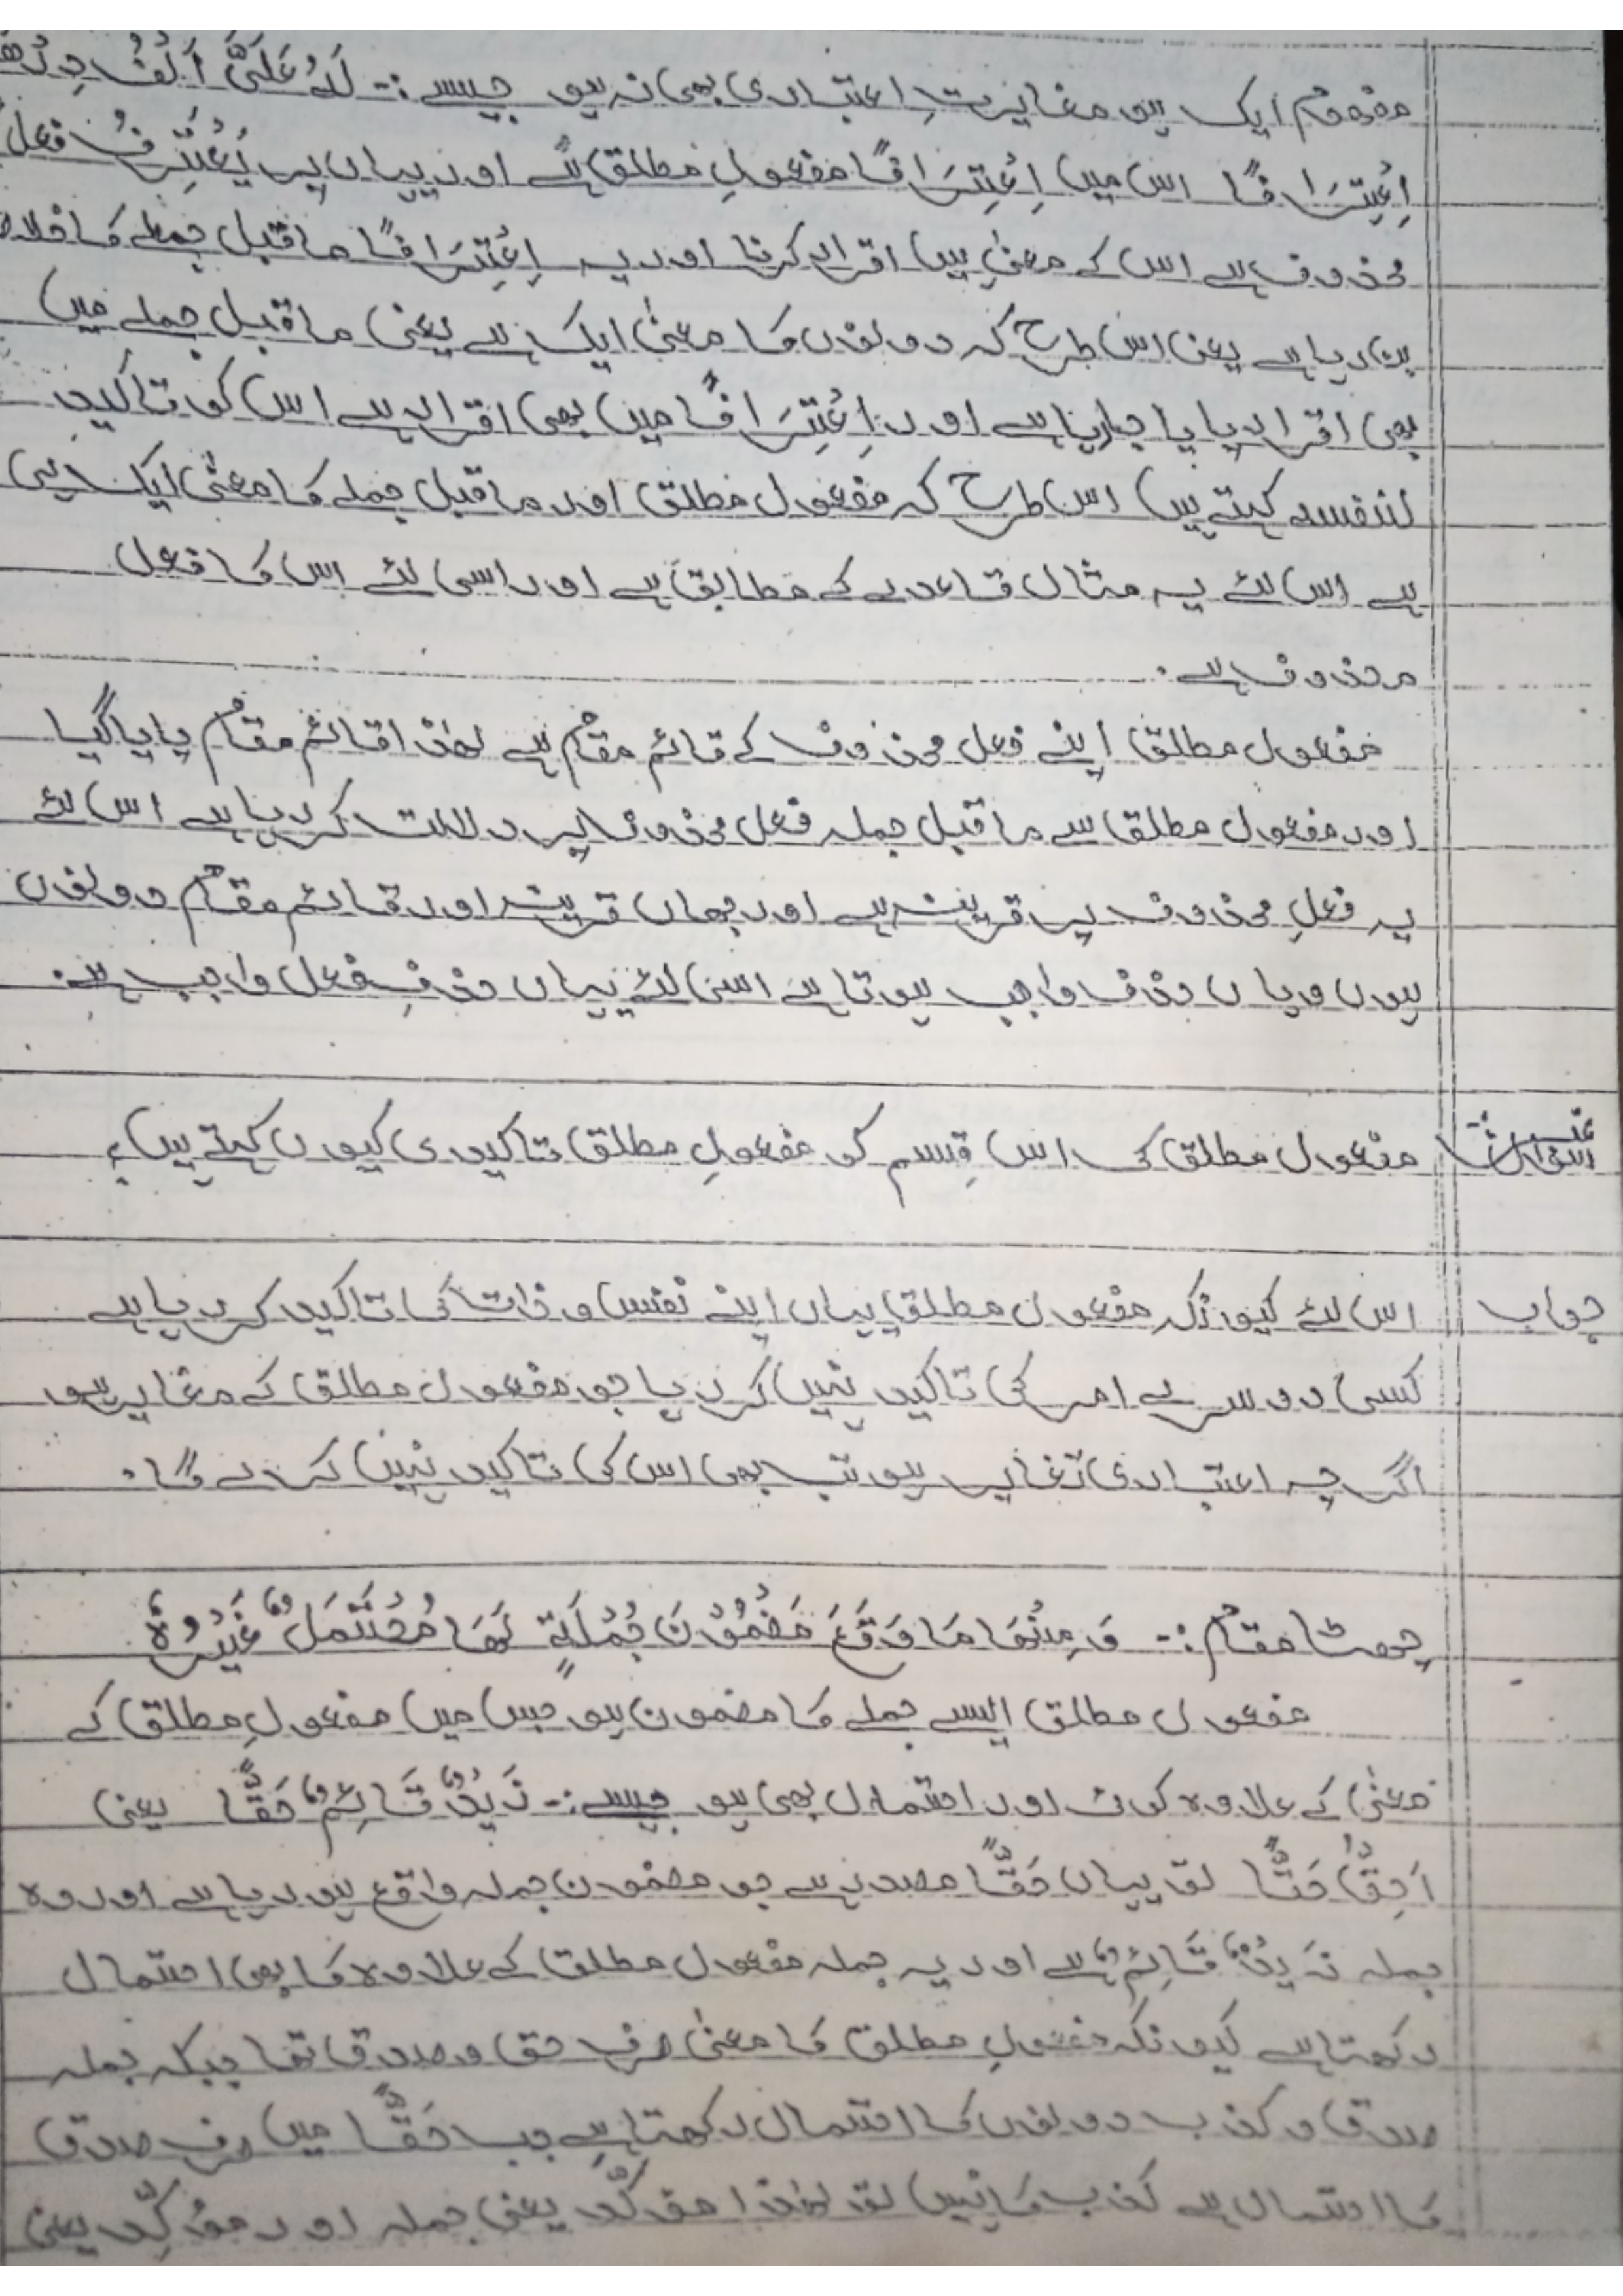 مفہوم ایک ہو مغایرتِ اعتباری بھی نہ ہو جیسے :- لَہٗ عَلَیَّ اَلْفُ دِرْھَ
اِعْتِرَافًا اس میں اِعْتِرَافًا مفعولِ مطلق ہے اور یہاں پر یَعْتَرِفُ فعل
محذوف ہے اس کے معنیٰ ہیں اقرار کرنا اور یہ اِعْتِرَافًا ماقبل جملے کا خلاص
بن رہا ہے یعنی اس طرح کہ دونوں کا معنیٰ ایک ہے یعنی ماقبل جملے میں
بھی اقرار پایا جارہا ہے اور اِعْتِرَافًا میں بھی اقرار ہے اس کو تاکید
لنفسہ کہتے ہیں اس طرح کہ مفعول مطلق اور ماقبل جملے کا معنیٰ ایک ہی
ہے اس لئے یہ مثال قاعدے کے مطابق ہے اور اسی لئے اس کا فعل
محذوف ہے۔
مفعول مطلق اپنے فعل محذوف کے قائم مقام ہے لھٰذا قائم مقام پایا گیا
اور مفعول مطلق سے ماقبل جملہ فعل محذوف پر دلالت کر رہا ہے اس لئے
یہ فعلِ محذوف پر قرینہ ہے اور جہاں قرینہ اور قائم مقام دونوں
ہوں وہاں حذف واجب ہوتا ہے اس لئے یہاں حذفِ فعل واجب ہے۔
سوال مفعول مطلق کی اس قِسم کو مفعولِ مطلق تاکیدی کیوں کہتے ہیں؟
جواب اس لئے کیونکہ مفعول مطلق یہاں اپنے نفس و ذات کی تاکید کر رہا ہے
کسی دوسرے امر کی تاکید نہیں کر رہا جو مفعول مطلق کے مغایر ہو
اگرچہ اعتباری تغایر ہو تب بھی اس کی تاکید نہیں کرے گا۔
چھٹا مقام :- وَ مِنْھَا مَا وَقَعَ مَضْمُوْنَ جُمْلَۃٍ لَھَا مُحْتَمَلٌ غَیْرُہٗ
مفعول مطلق ایسے جملے کا مضمون ہو جس میں مفعولِ مطلق کے
معنیٰ کے علاوہ کوئی اور احتمال بھی ہو جیسے :- زَیْدٌ قَائِمٌ حَقًّا یعنی
اَحِقُّ حَقًّا تو یہاں حَقًّا مصدر ہے جو مضمون جملہ واقع ہو رہا ہے اور وہ
جملہ زَیْدٌ قَائِمٌ ہے اور یہ جملہ مفعول مطلق کے علاوہ کا بھی احتمال
رکھتا ہے کیونکہ مفعولِ مطلق کا معنیٰ صرف حق و صدق تھا جبکہ جملہ
صدق و کذب دونوں کا احتمال رکھتا ہے جب حَقًّا میں صرف صدق
کا احتمال ہے کذب کا نہیں تو لھٰذا مؤکَّد یعنی جملہ اور مؤکِّد یعنی